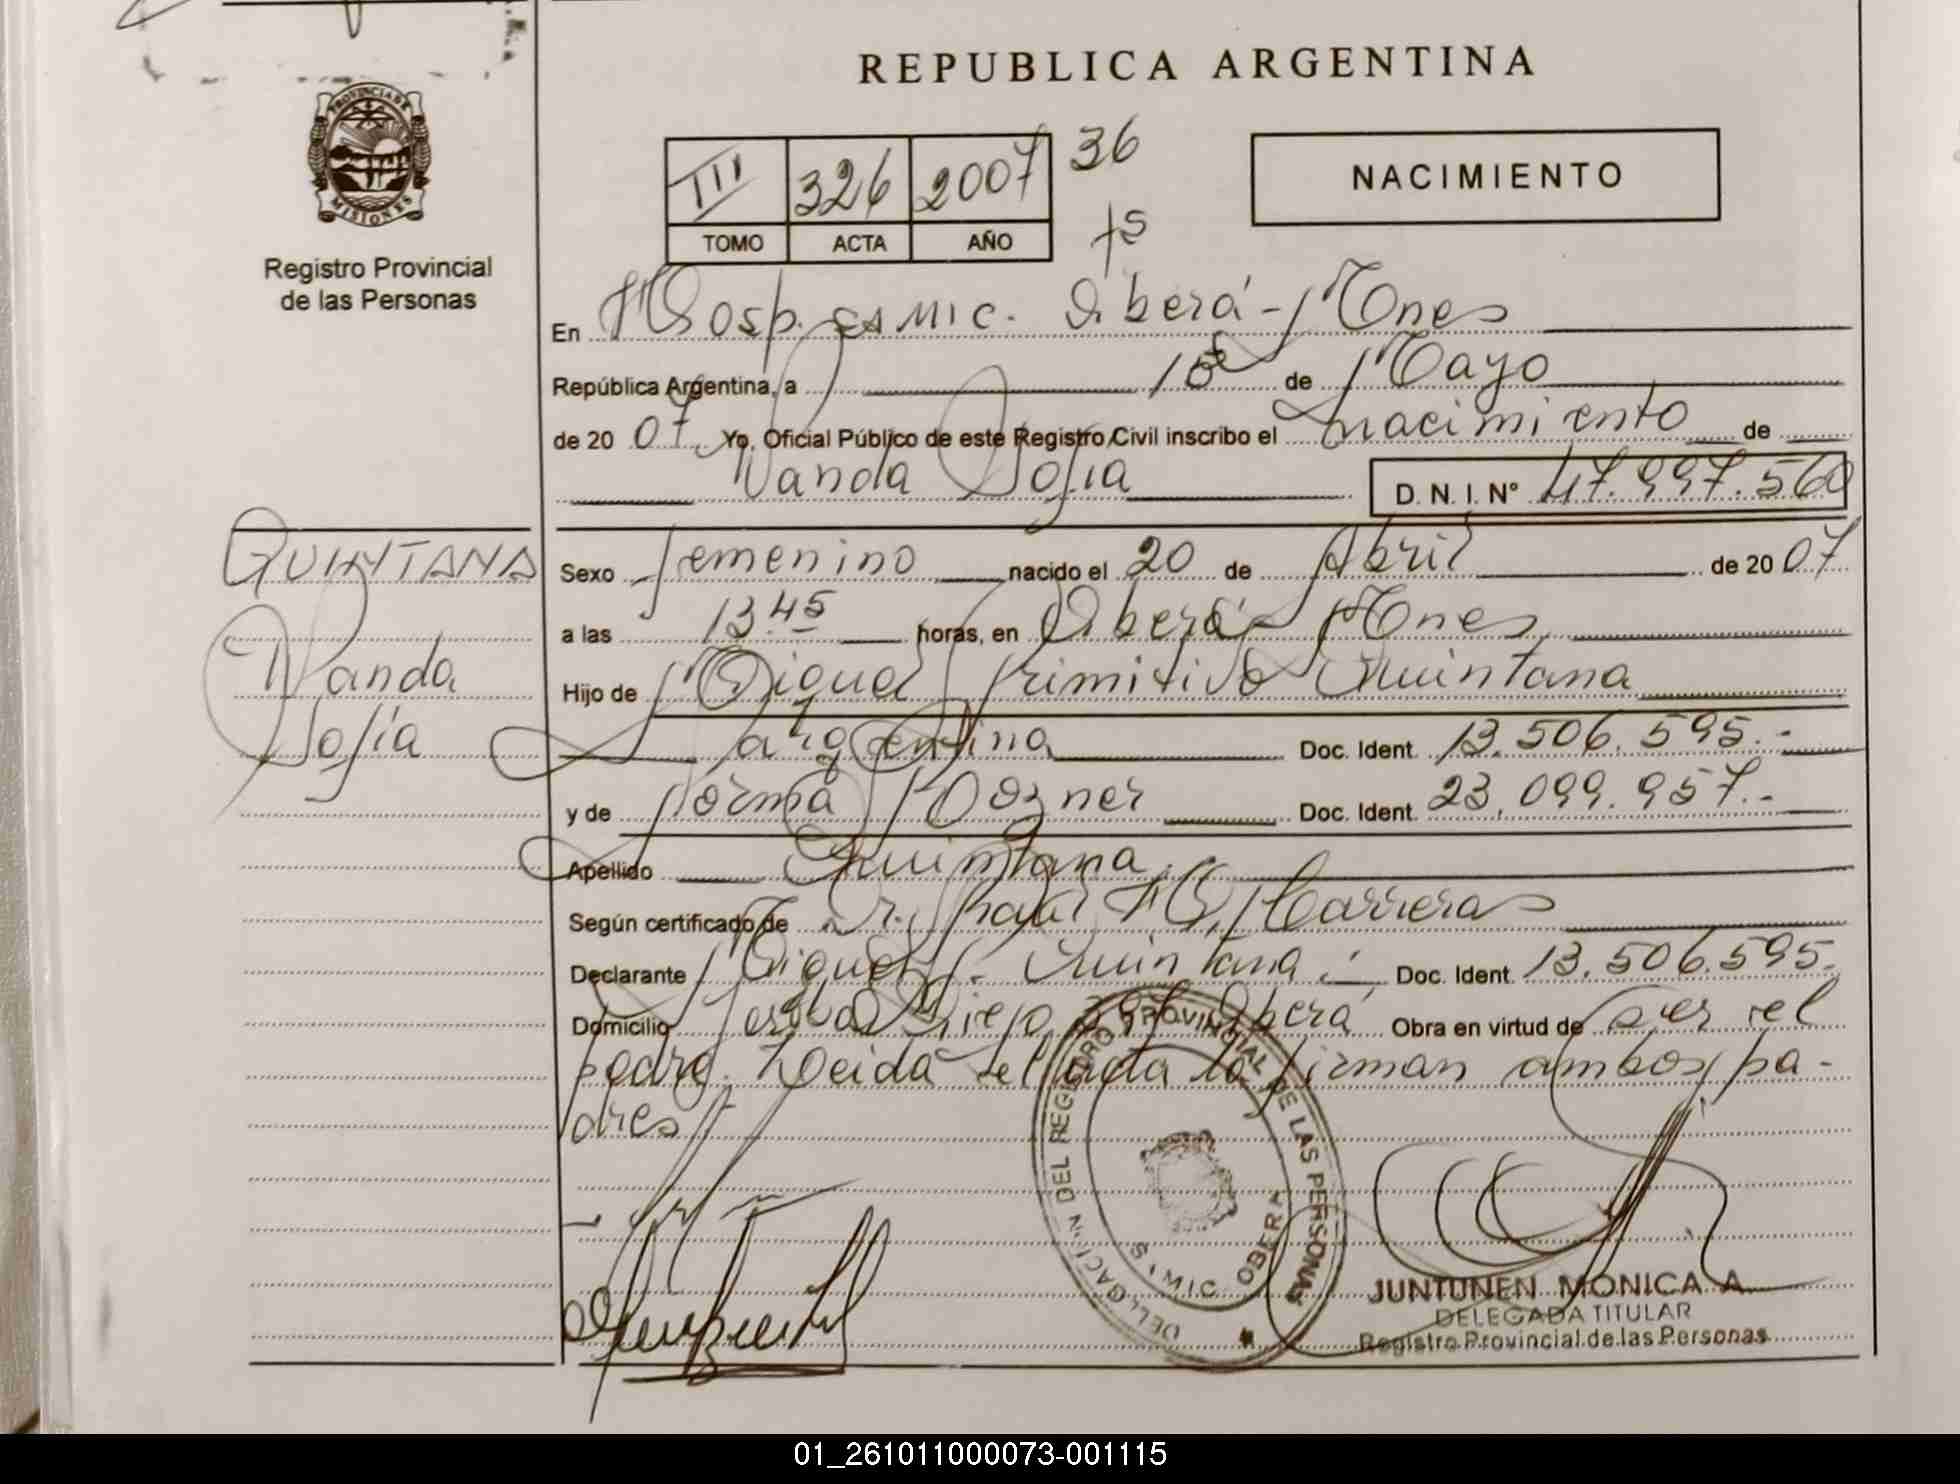 REPUBLICA ARGENTINA
PROVINCIA DE
MISIONES
Registro Provincial
de las Personas
III 326 2007 36
TOMO ACTA AÑO fs
NACIMIENTO
En Hosp. SAMIC. Oberá - Mnes
República Argentina, a 18 de Mayo
de 20 07. Yo, Oficial Público de este Registro Civil inscribo el nacimiento de
Wanda Sofia D. N. I. N° 47.997.560
QUINTANA
Wanda
Sofia
Sexo femenino nacido el 20 de Abril de 20 07
a las 13.45 horas, en Oberá Mnes
Hijo de Miguel Primitivo Quintana
argentina Doc. Ident. 13.506.595.-
y de Norma Dozner Doc. Ident. 23.099.957.-
Apellido Quintana
Según certificado de Dr. Raúl H. Carreras
Declarante Miguel P. Quintana Doc. Ident. 13.506.595.
Domicilio Oberá Obra en virtud de ser el
padre. Leida el acta la firman ambos pa-
dres
DELEGACION DEL REGISTRO PROVINCIAL DE LAS PERSONAS
OBERA
JUNTUNEN MONICA A
DELEGADA TITULAR
Registro Provincial de las Personas
01_261011000073-001115